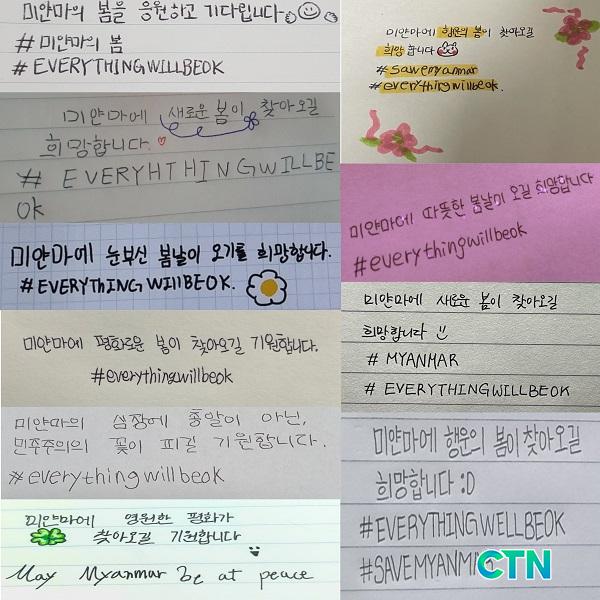 미얀마의 봄을 응원하고 기다립니다
#미얀마의 봄
# EVERYTHINGWILLBEOK
미얀마에 새로운 봄이 찾아오길
희망합니다.
# EVERYHTHINGWILLBE
OK
미얀마에 눈부신 봄날이 오기를 희망합니다.
#EVERYThINGWIllBEOK.
미얀마에 평화로운 봄이 찾아오길 기원합니다.
#everythingwillbeok
미얀마의 심장에 총알이 아닌,
민주주의의 꽃이 피길 기원합니다.
#everythingwillbeok
미얀마에 영원한 평화가
찾아오길 기원합니다
May Myanmar be at peace
미얀마에 행운의 봄이 찾아오길
희망합니다
#savemyanmar
#everythingwillbeok.
미얀마에 따뜻한 봄날이 오길 희망합니다
#everythingwillbeok
미얀마에 새로운 봄이 찾아오길
희망합니다 :)
# MYANMAR
# EVERYTHINGWILLBEOK
미얀마에 행운의 봄이 찾아오길
희망합니다 :D
#EVERYTHINGWELLBEOK
#SAVEMYANM
CTN